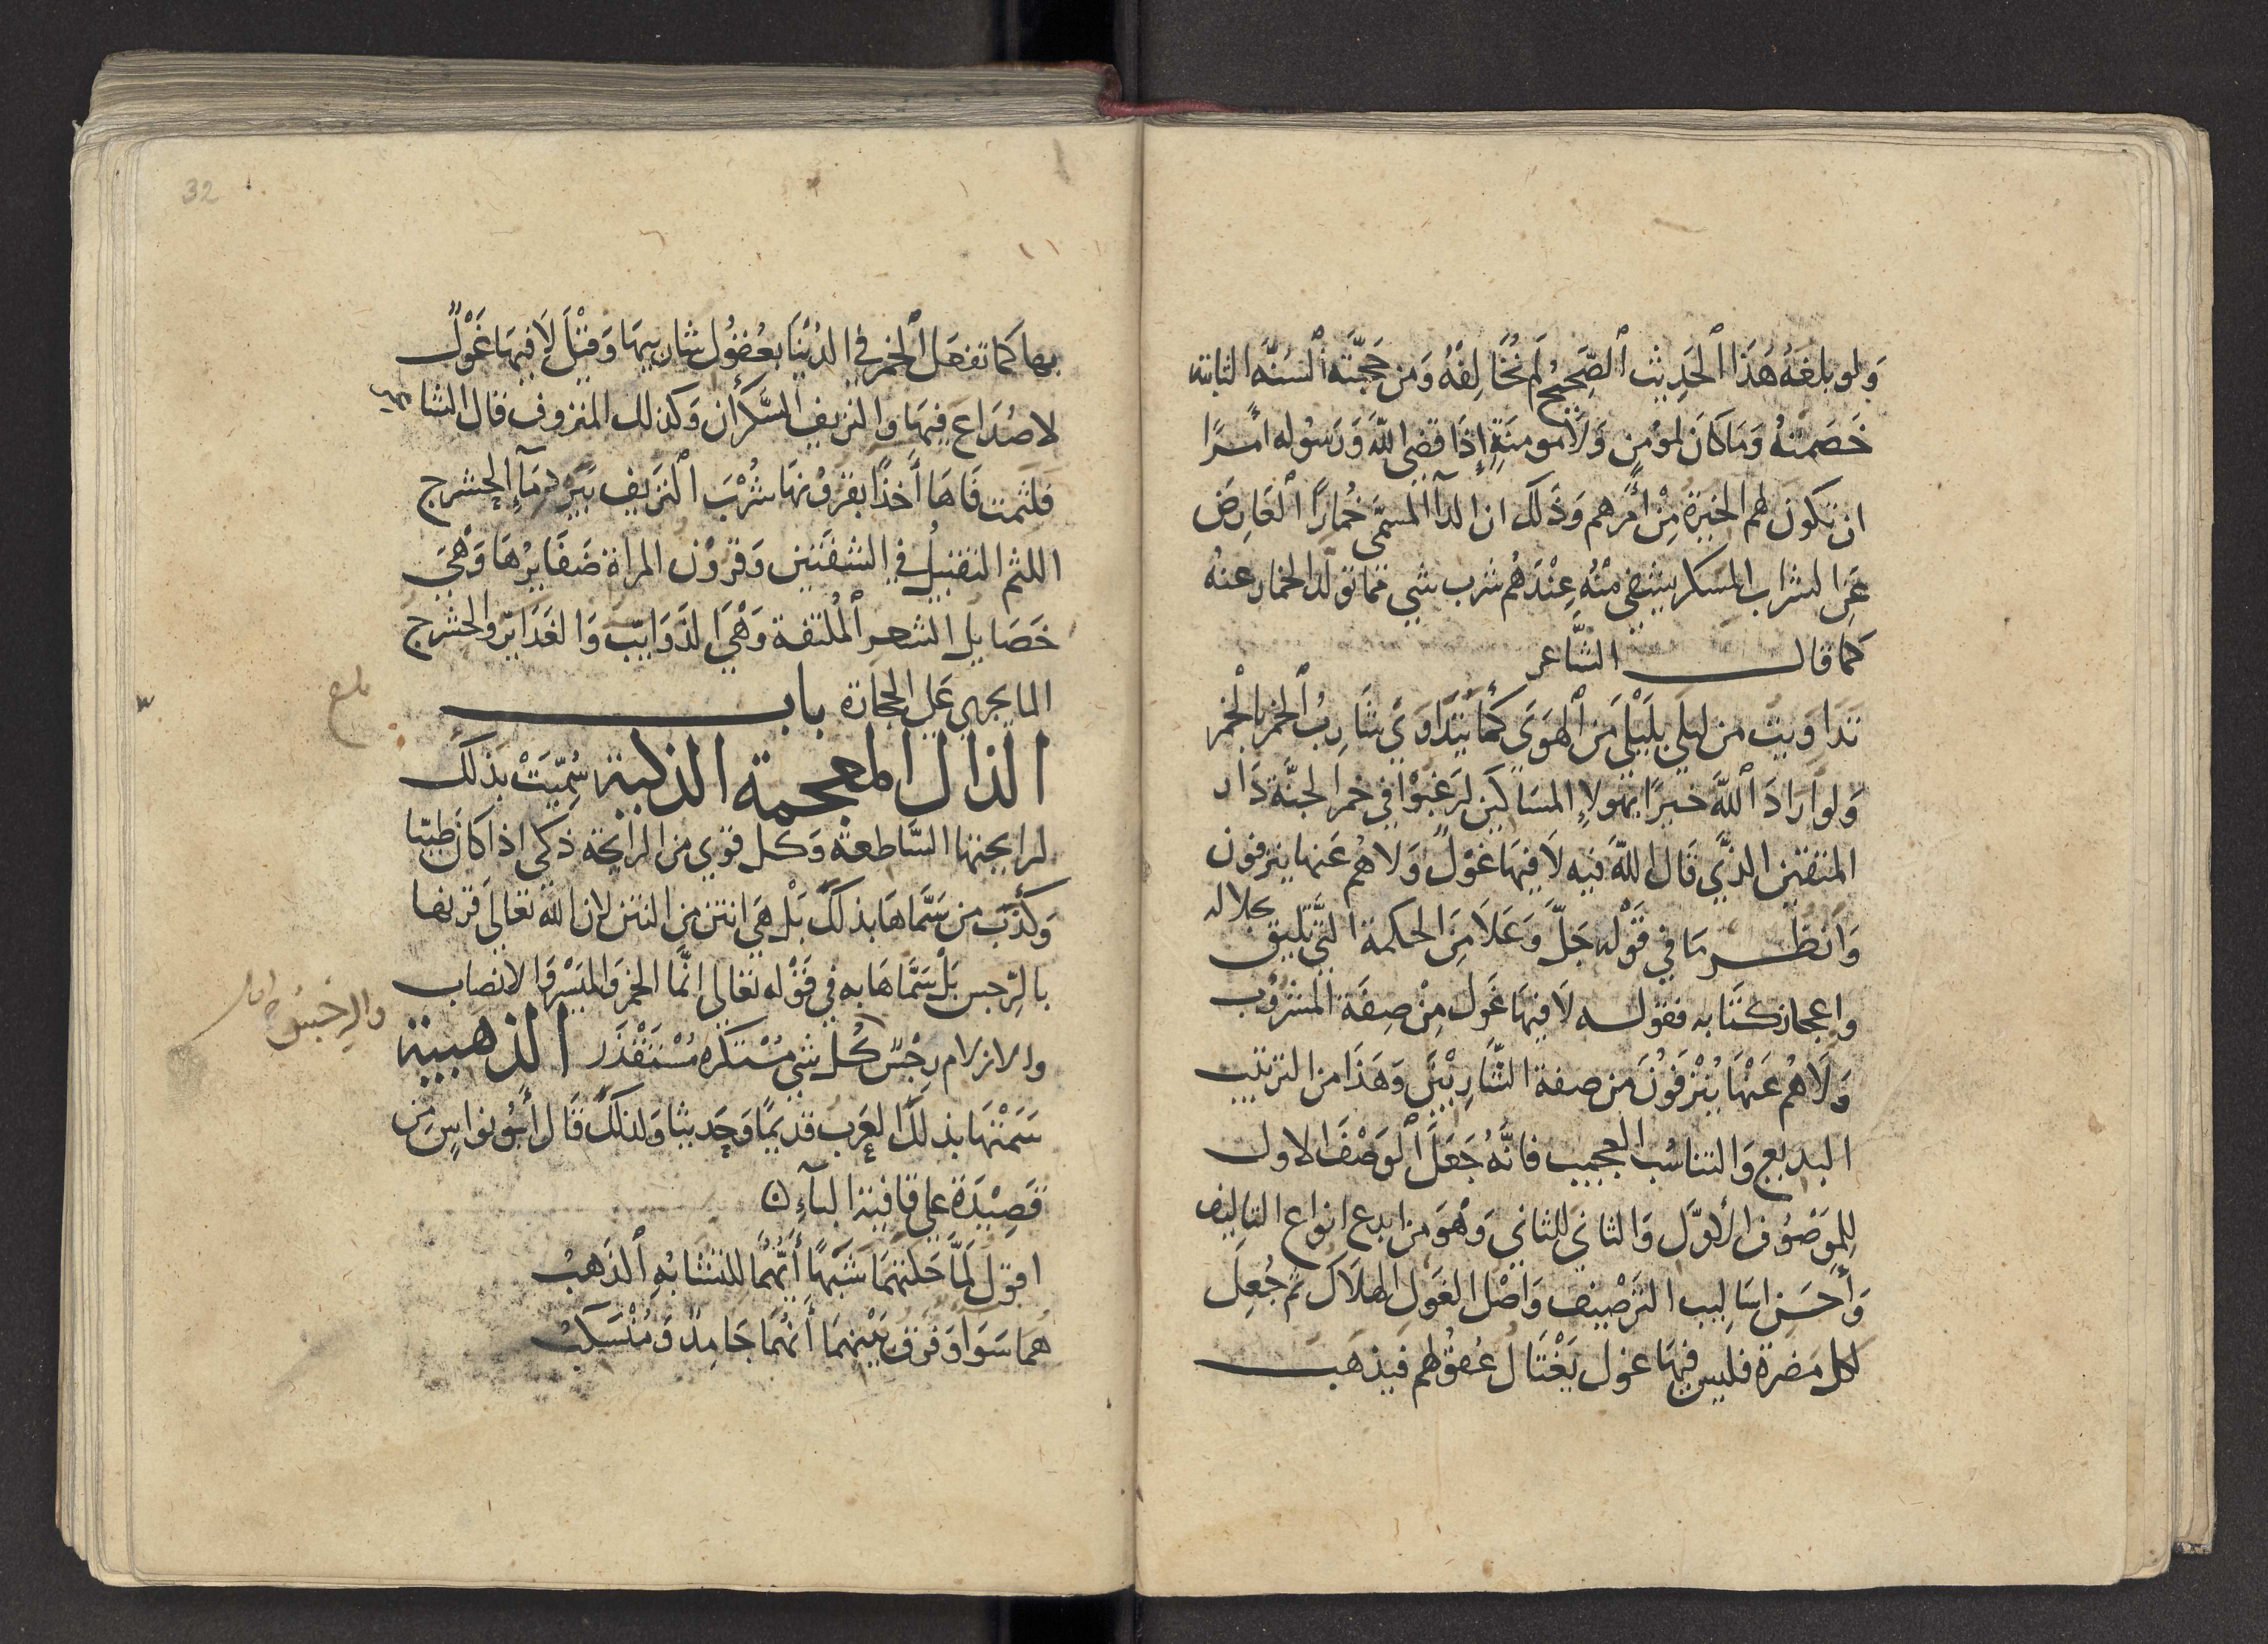 وَلو بلغَهُ هَذَا الْحَدِيث الصَّحِيحُ لَم يُخَالِفْهُ وَمن حَجَّتهُ السُنَّه الثابته
خَصَمتهُ وَمَا كَانَ لمؤمِنٍ وَلَا مومنَةٍ إِذَا قضى اللهُ وَرَسُوله امرًا
ان تكون لهم الخِيَرة مِنْ أمرهم وَذَلك ان الدآ المسمَّى خُمارًا العَارِضَ
عَن الشراب المسكر يشفى منهُ عِنْدَهُم شرب شى مما تولد الخمار عنهُ
كما قال الشَّاعر
تدَاوَيت من ليلَى بلَيْلَى مَن الهوَى كَمَا يتدَاوَى شَارِبُ الخمرِ بالْخمر
وَلو ارَادَ اللهَ خيرًا بهولاءِ المسَاكين لرَغبُوْا فى خمر الجنَّة دَار
المتقين الذَّى قَال اللهَ فيه لَا فيهَا غَوْلٌ وَلا هُم عَنها ينزفون
وَانظر مَا في قَوْله جَلَّ وَعَلَا مِنَ الحكمة التَّى تليق بجلاله
واعجاز كتَابه فقوله لَا فيهَا غَول مِنْ صِفَة المشرُوب
وَلَا هُم عَنْهَا يُنْزَفُونَ من صفة الشَّارِبيْنَ وَهَذَا من الترتيب
البديع وَالتناسُب العجيب فانَّهُ جَعَلَ الْوَصْفَ الاول
لِلمَوصُوف الأوَّل وَالثاني للثاني وَهُوَ من ابدع انواع التاليف
وَأحسَن اسَاليب التَرْصيف وَاصْل الغَوْلِ الهلَاك ثم جُعِل
لكل مَضرة فليس فيهَا غول يَغْتَال عُقوْلهم فيذهَب
32
بها كما تفعَل الْخمر في الدُّنْيَا بعُقُول شاربيهَا وَقيْلَ لَا فيهَا غَوْلٌ
لا صُدَاعَ فيهَا والنزيف السَّكرَان وَكذلك المنزوف قال الشاعر
فلثمت فَاهَا أخذًا بقرُوْنهَا شُرْبَ النزيف ببَردِ مَآءِ الحشرج
اللثم التقبيل في الشفتَين وَقُرُوْن المراة ضَفَايرُهَا وَهْىَ
خَصَايل الشعر الْمُلتفة وَهْيَ الذَّوَايب وَالغدَاير والحشرج
الما يجرى عَلى الحجارة باب
الذال المعجمة الذكية سُمِّيَتْ بذلك
لرايحتها السَّاطعة وَكل قوِى من الرايحة ذكى اذا كان طيبا
وَكذَبَ من سَمَّاهَا بذلكَ بَلْ هىَ انتن من النتن لان الله تعَالى قرنها
بالرِّجس بَلْ سَمَّاهَا به في قَوْله تعَالى انَّما الخمر وَالميَسْر وَالانصاب
والازلام رجْسٌ كُل شى مُسْتكره مُسْتَقْذَر الذهبية
سَمَتْهَا بذلكَ العَرَب قدَيمًا وَحَديثا وَلذلكَ قَال أبُو نواسٍ مِن
قَصِيْدَة على قافية البآءِ
اقول لَمَّا حَكَتهُمَا شَبَهًا أيُّهُمَا للتشَابُهِ الذَهبُ
هُمَا سَوَا وَفرَق بَيْنهمَا أنهُمَا جَامِدٌ وَمُنْسَكبُ
بلغ